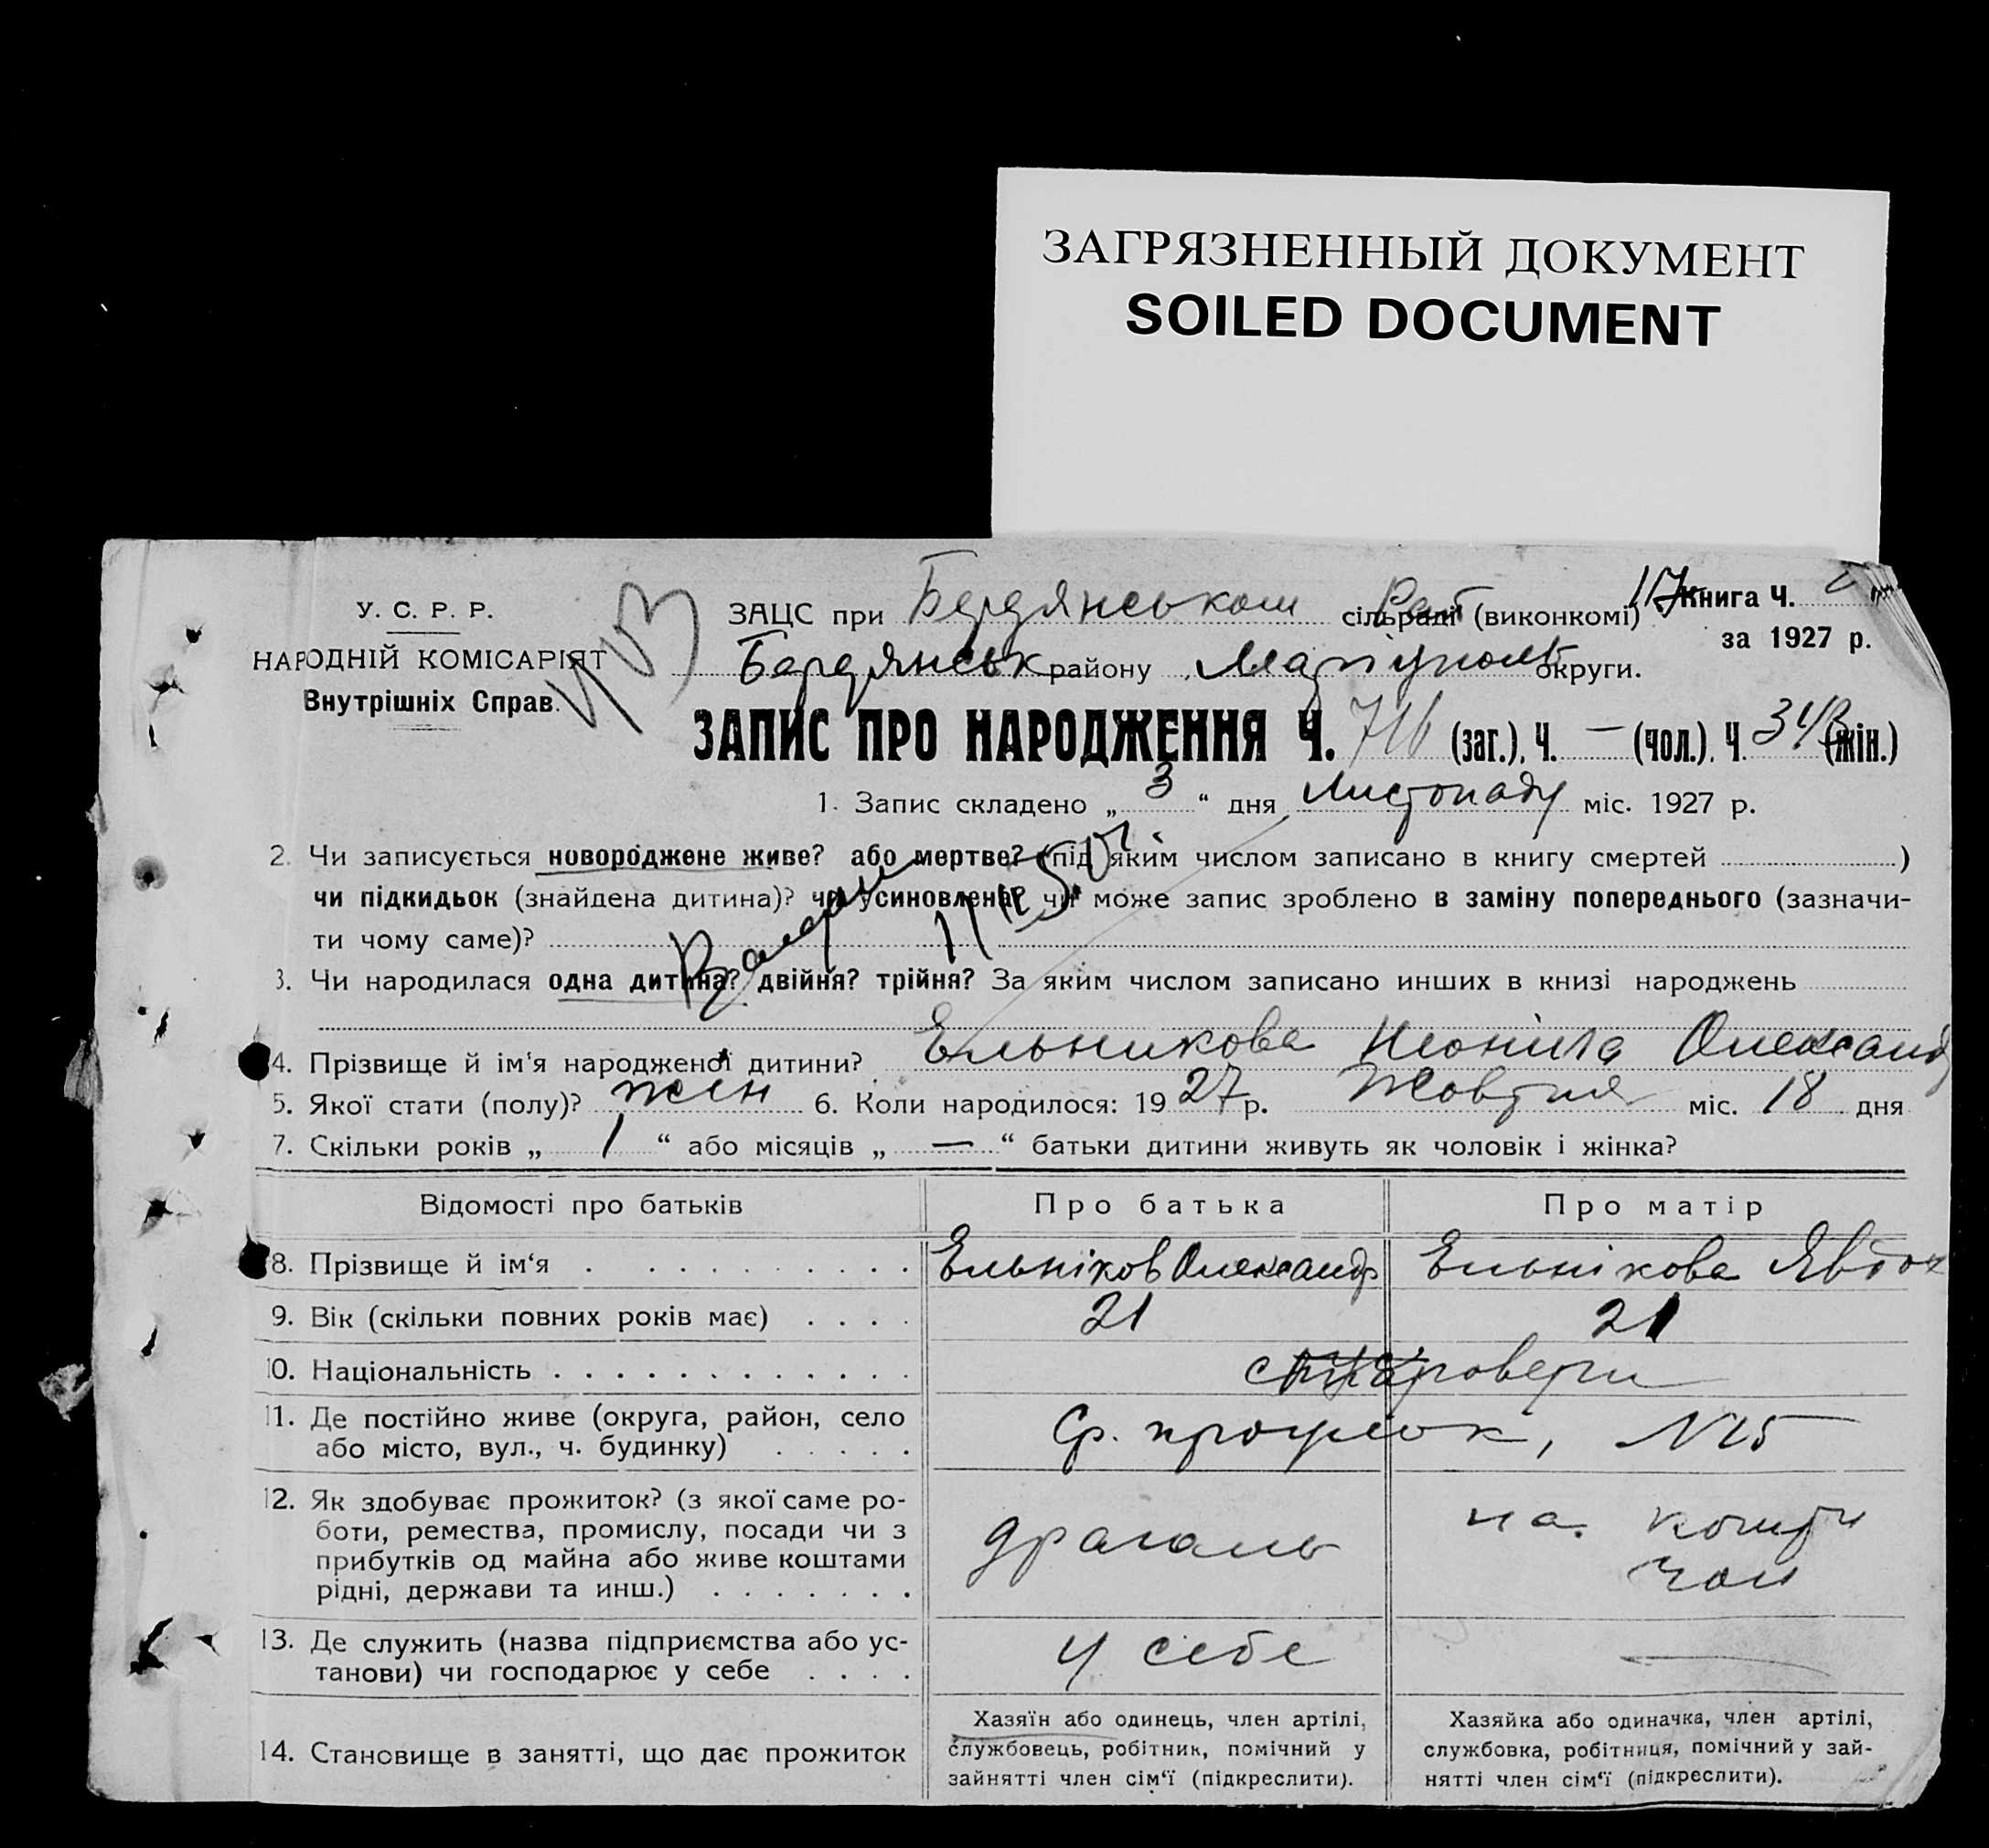 ЗАГРЯЗНЕННЫЙ ДОКУМЕНТ
SOILED DOCUMENT
У. С. Р. Р.
НАРОДНІЙ КОМІСАРІЯТ
Внутрішніх Справ.
ЗАЦС при Бердянськом сільраді (виконкомі)
Книга Ч.
за 1927 р.
Бердянськ району Маріупольс округи.
ЗАПИС ПРО НАРОДЖЕННЯ Ч. 716 (заг.), Ч. — (чол.), Ч. 343 (жін.)
1. Запис складено „ 3 “ дня Листопаду міс. 1927 р.
2. Чи записується новороджене живе? або мертве? (під яким числом записано в книгу смертей )
чи підкидьок (знайдена дитина)? чи усиновлена? чи може запис зроблено в заміну попереднього (зазначи-
ти чому саме)?
3. Чи народилася одна дитина? двійня? трійня? За яким числом записано инших в книзі народжень
4. Прізвище й ім‘я народженої дитини? Ельникова Неоніла Олександ
5. Якої стати (полу)? жін 6. Коли народилося: 1927 р. Жовтня міс. 18 дня
7. Скільки років „ 1 “ або місяців „ — “ батьки дитини живуть як чоловік і жінка?
Відомості про батьків Про батька Про матір
8. Прізвище й ім‘я Ельніков Олександр Ельнікова Явдок
9. Вік (скільки повних років має) 21 21
10. Національність
11. Де постійно живе (округа, район, село
або місто, вул., ч. будинку)
Ср. N25
12. Як здобуває прожиток? (з якої саме ро-
боти, ремества, промислу, посади чи з
прибутків од майна або живе коштами
рідні, держави та инш.)
драгаль
на кошти
чол
13. Де служить (назва підприємства або ус-
танови) чи господарює у себе
у себе —
14. Становище в занятті, що дає прожиток
Хазяїн або одинець, член артілі,
службовець, робітник, помічний у
зайнятті член сім‘ї (підкреслити).
Хазяйка або одиначка, член артілі,
службовка, робітниця, помічний у зай-
нятті член сім‘ї (підкреслити).